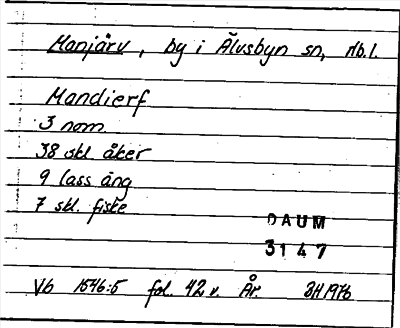 Manjärv, by i Älvsbyn sn, Nb.l.
Mandierf
3 nom.
38 skl åker
9 lass äng
7 skl. fiske
DAUM
3147
Vb 1546:5 fol. 42 v. År. BH 1976